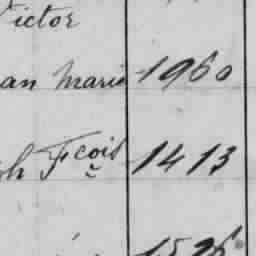 Victor
an Marie 1960
ph Fcois 1413
1526